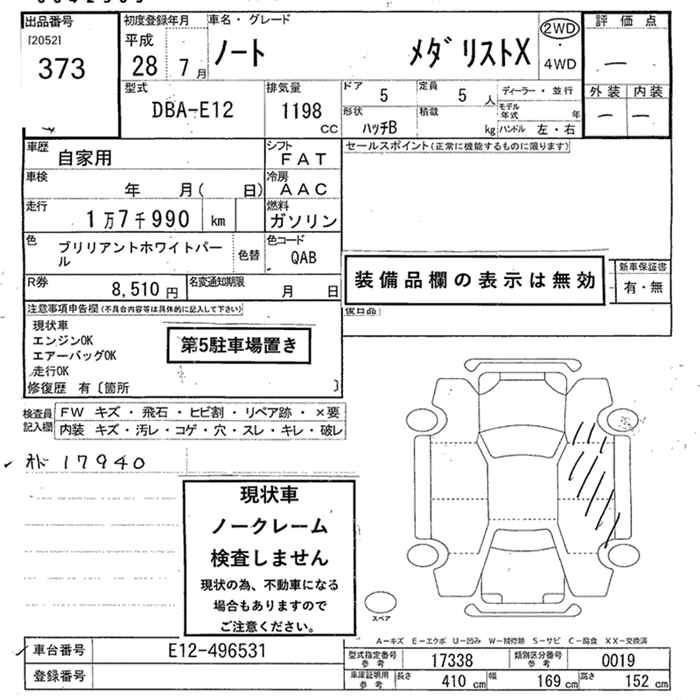 出品番号
[2052]
373
初度登録年月
平成
28 7月
車名・グレード
ノート メダリストX
2WD
・
4WD
評価点
—
外装 内装
— —
型式
DBA-E12
排気量
1198
CC
ドア
5
定員
5人
ディーラー・並行
モデル年式 年
形状
ハッチB
積載
kg
ハンドル 左・右
車歴
自家用
シフト
FAT
セールスポイント(正常に機能するものに限ります)
車検
年 月( 日)
冷房
AAC
走行
1万7千990 km
燃料
ガソリン
色
ブリリアントホワイトパール
色替
色コード
QAB
R券
8,510円
名変通知期限
月 日
装備品欄の表示は無効
新車保証書
有・無
注意事項申告欄(不具合内容等は具体的に記入して下さい)
現状車
エンジンOK
エアーバッグOK
走行OK
第5駐車場置き
修復歴 有〔箇所 〕
検査員記入欄
FW キズ・飛石・ヒビ割・リペア跡・×要
内装 キズ・汚レ・コゲ・穴・スレ・キレ・破レ
オド 17940
現状車
ノークレーム
検査しません
現状の為、不動車になる
場合もありますので
ご注意ください。
スペア
A-キズ E-エクボ U-凹み W-補修跡 S-サビ C-腐食 XX-交換済
車台番号 E12-496531
登録番号
型式指定番号 参考 17338
類別区分番号 参考 0019
車庫証明用 参考 長さ 410 cm 幅 169 cm 高さ 152 cm